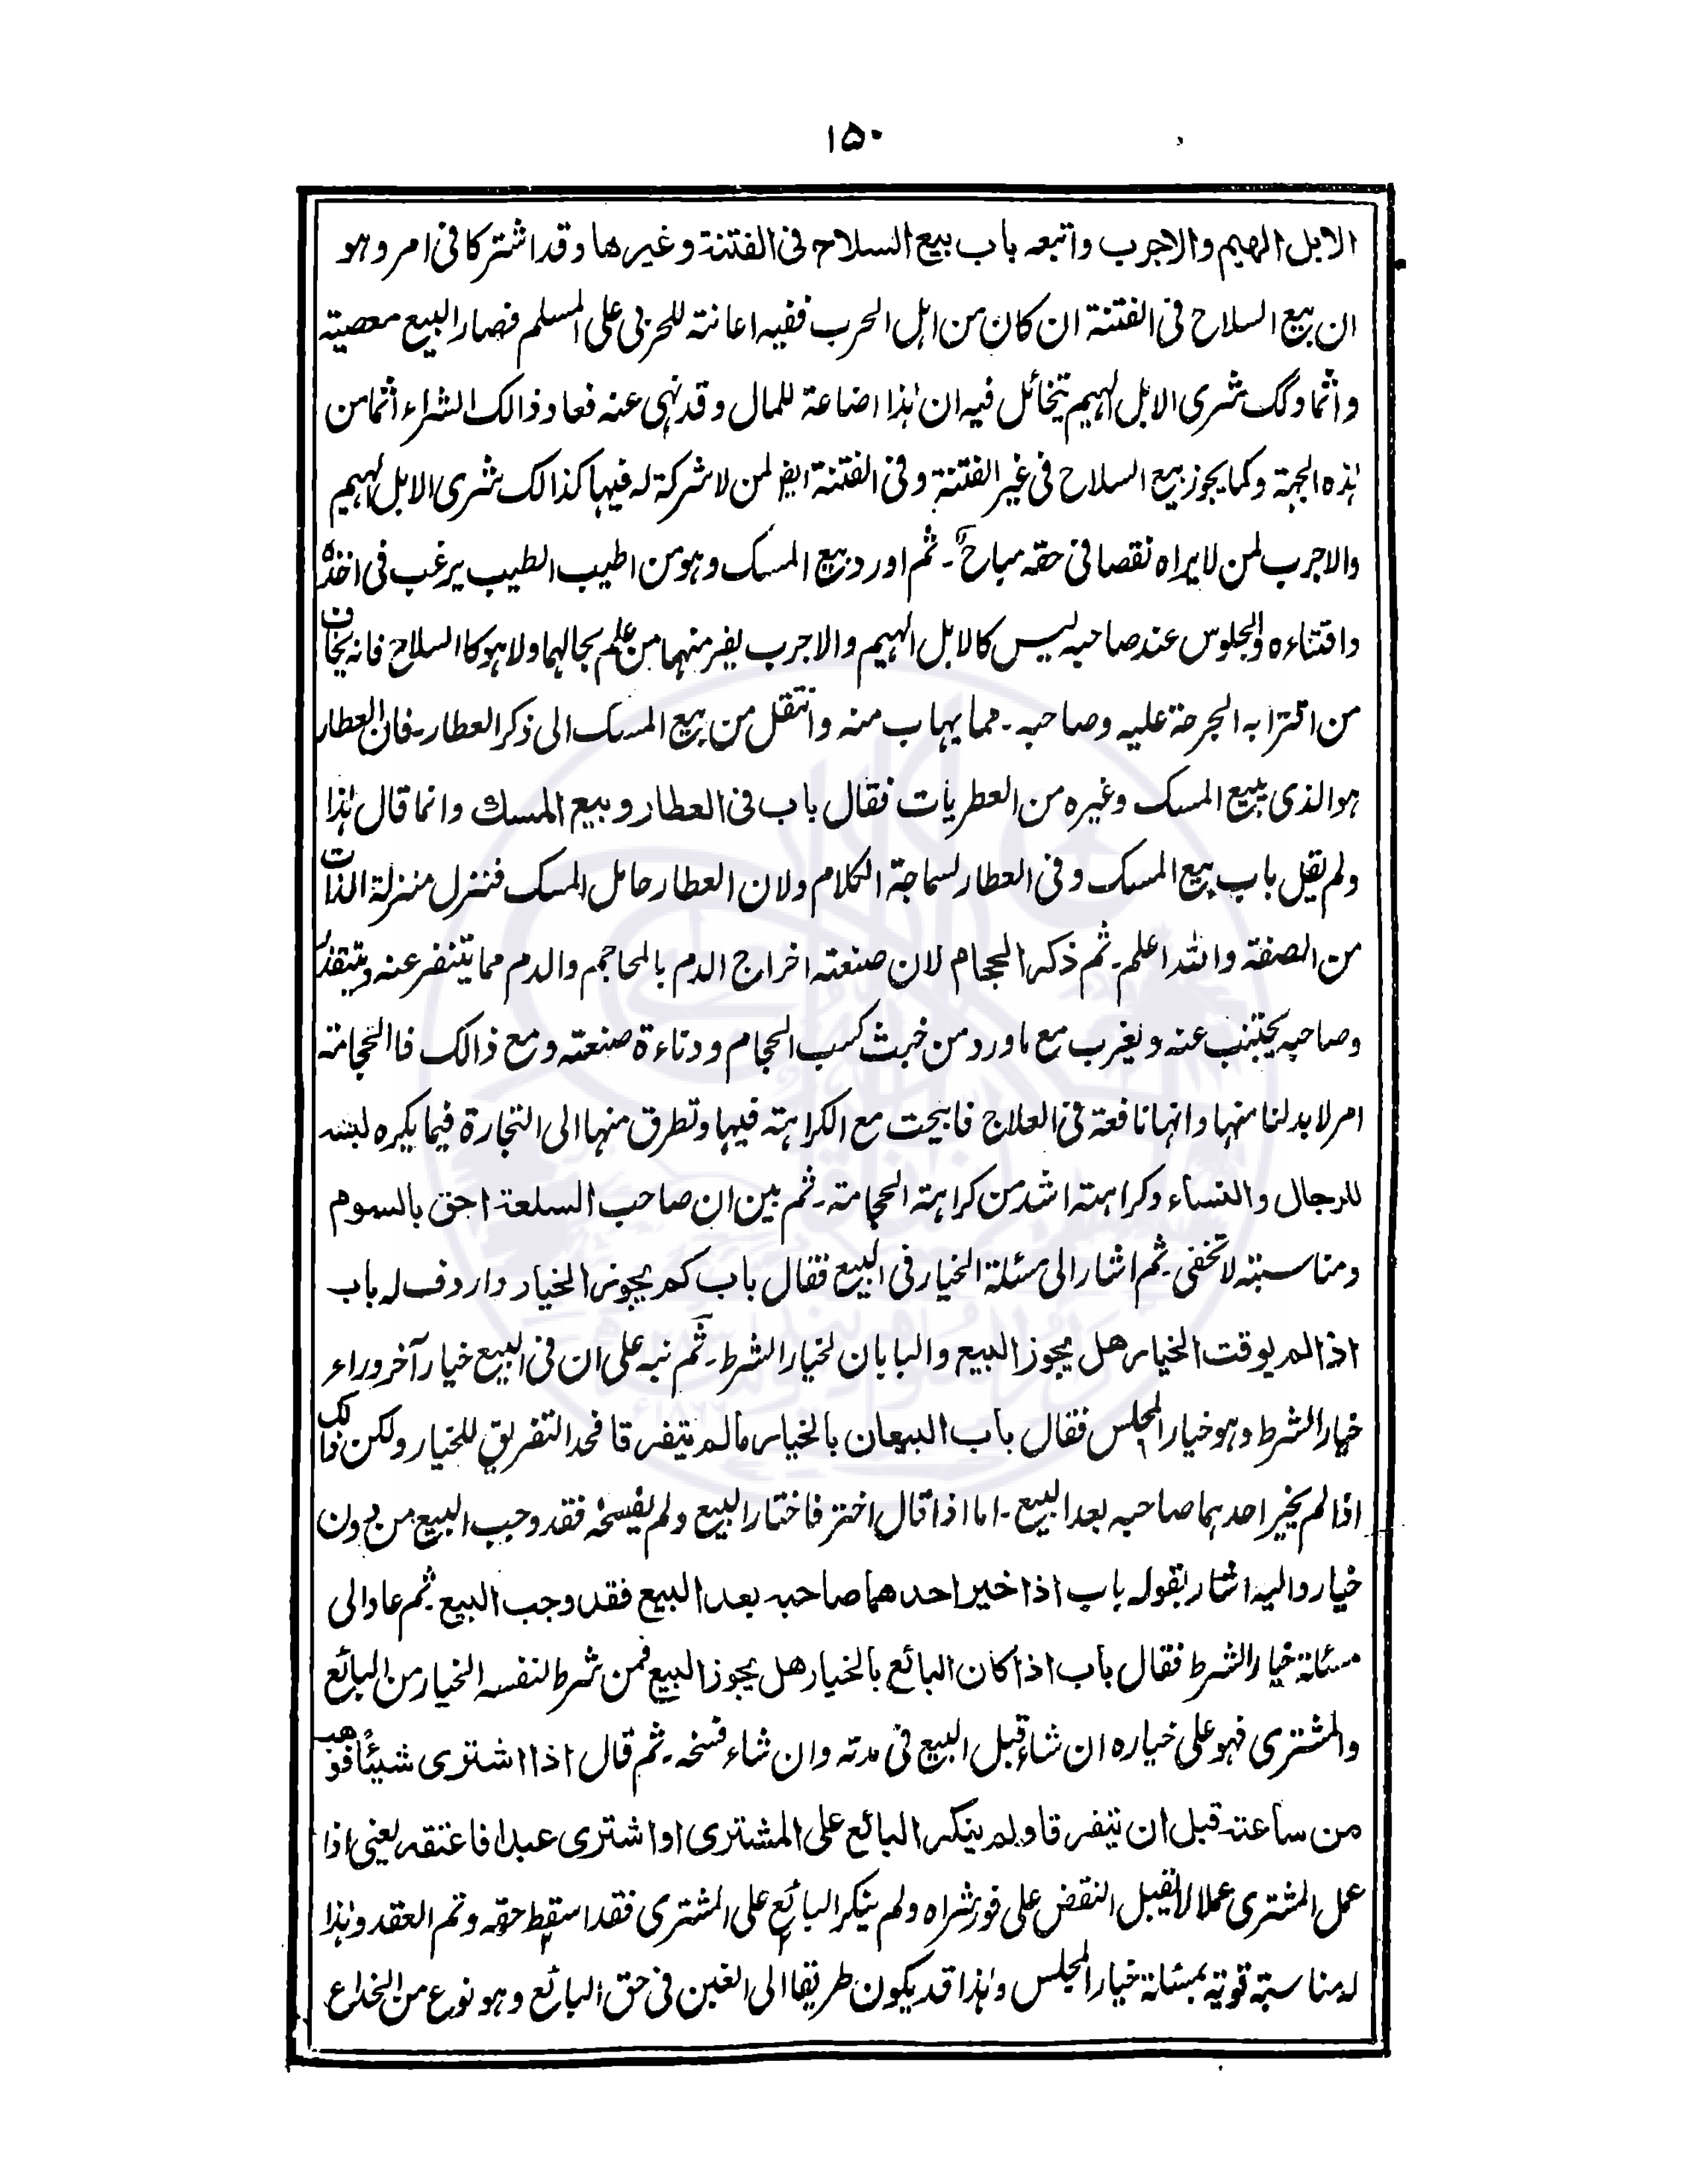 ۱۵۰
الابل الهيم والاجرب واتبعه باب بيع السلاح فى الفتنة وغيرها وقد اشتركا فى امر وهو
ان بيع السلاح فى الفتنة ان كان من اہل الحرب ففيه اعانته للحربى على المسلم فصار البيع معصيته
واثما وكك شرى الابل الہيم يتخائل فيه ان ہذا اضاعة للمال وقد نہى عنه فعاد ذالك الشراء اثما من
ہذه الجہة وكما يجوز بيع السلاح فى غير الفتنة وفى الفتنة ايضا لمن لا شركة له فيہا كذالك شرى الابل الہيم
والاجرب لمن لا يراه نقصا فى حقه مباح۔ ثم اورد بيع المسك وہو من اطيب الطيب يرغب فى اخذه
واقتناءه والجلوس عند صاحبه ليس كالابل الہيم والاجرب يفر منہما من علم بحالہما ولا ہو كالسلاح فانه يخاف
من اقترابه الجرحة عليه وصاحبه۔ مما يہاب منه وانتقل من بيع المسك الى ذكر العطار۔ فان العطار
ہو الذى يبيع المسك وغيره من العطريات فقال باب فى العطار وبيع المسك وانما قال ہذا
ولم يقل باب بيع المسك وفى العطار لسماجة الكلام ولان العطار حامل المسك فنزل منزلة الذات
من الصفة والله اعلم۔ ثم ذكر الحجام لان صنعته اخراج الدم بالمحاجم والدم مما يتنفر عنه ويتقذر
وصاحبه يجتنب عنه ويغرب مع ما ورد من خبث كسب الحجام ودناءة صنعته ومع ذالك فالحجامة
امر لا بد لنا منہا وانہا نافعة فى العلاج فابيحت مع الكراہته فيہا وتطرق منہا الى التجارة فيما يكره لبسه
للرجال والنساء وكراہته اشد من كراہته الحجامته۔ ثم بين ان صاحب السلعة احق بالسوم
ومناسبته لا تخفى۔ ثم اشار الى مسئلة الخيار فى البيع فقال باب كم يجوز الخيار واردف له باب
اذا لم يوقت الخيار هل يجوز البيع والبابان لخيار الشرط۔ ثم نبه على ان فى البيع خيار آخر وراء
خيار الشرط وہو خيار المجلس فقال باب البيعان بالخيار مالم يتفرقا فحد التفريق للخيار ولكن ذالك
اذا لم يخير احدہما صاحبه بعد البيع۔ اما اذا قال اختر فاختار البيع ولم يفسخه فقد وجب البيع من دون
خيار واليه اشار بقوله باب اذا خير احدهما صاحبه بعد البيع فقد وجب البيع۔ ثم عاد الى
مسئلة خيار الشرط فقال باب اذا كان البائع بالخيار هل يجوز البيع فمن شرط لنفسه الخيار من البائع
والمشترى فہو على خياره ان شاء قبل البيع فى مدته وان شاء فسخه۔ ثم قال اذا اشترى شيئًا فوهب
من ساعته قبل ان يتفرقا ولم ينكر البائع على المشترى او اشترى عبدا فاعتقه يعنى اذا
عمل المشترى عملا لا يقبل النقض على فور شراه ولم ينكر البائع على المشترى فقد اسقط حقه وتم العقد وہذا
له مناسبة قوية بمسئلة خيار المجلس وہذا قد يكون طريقا الى الغبن فى حق البائع وہو نوع من الخداع